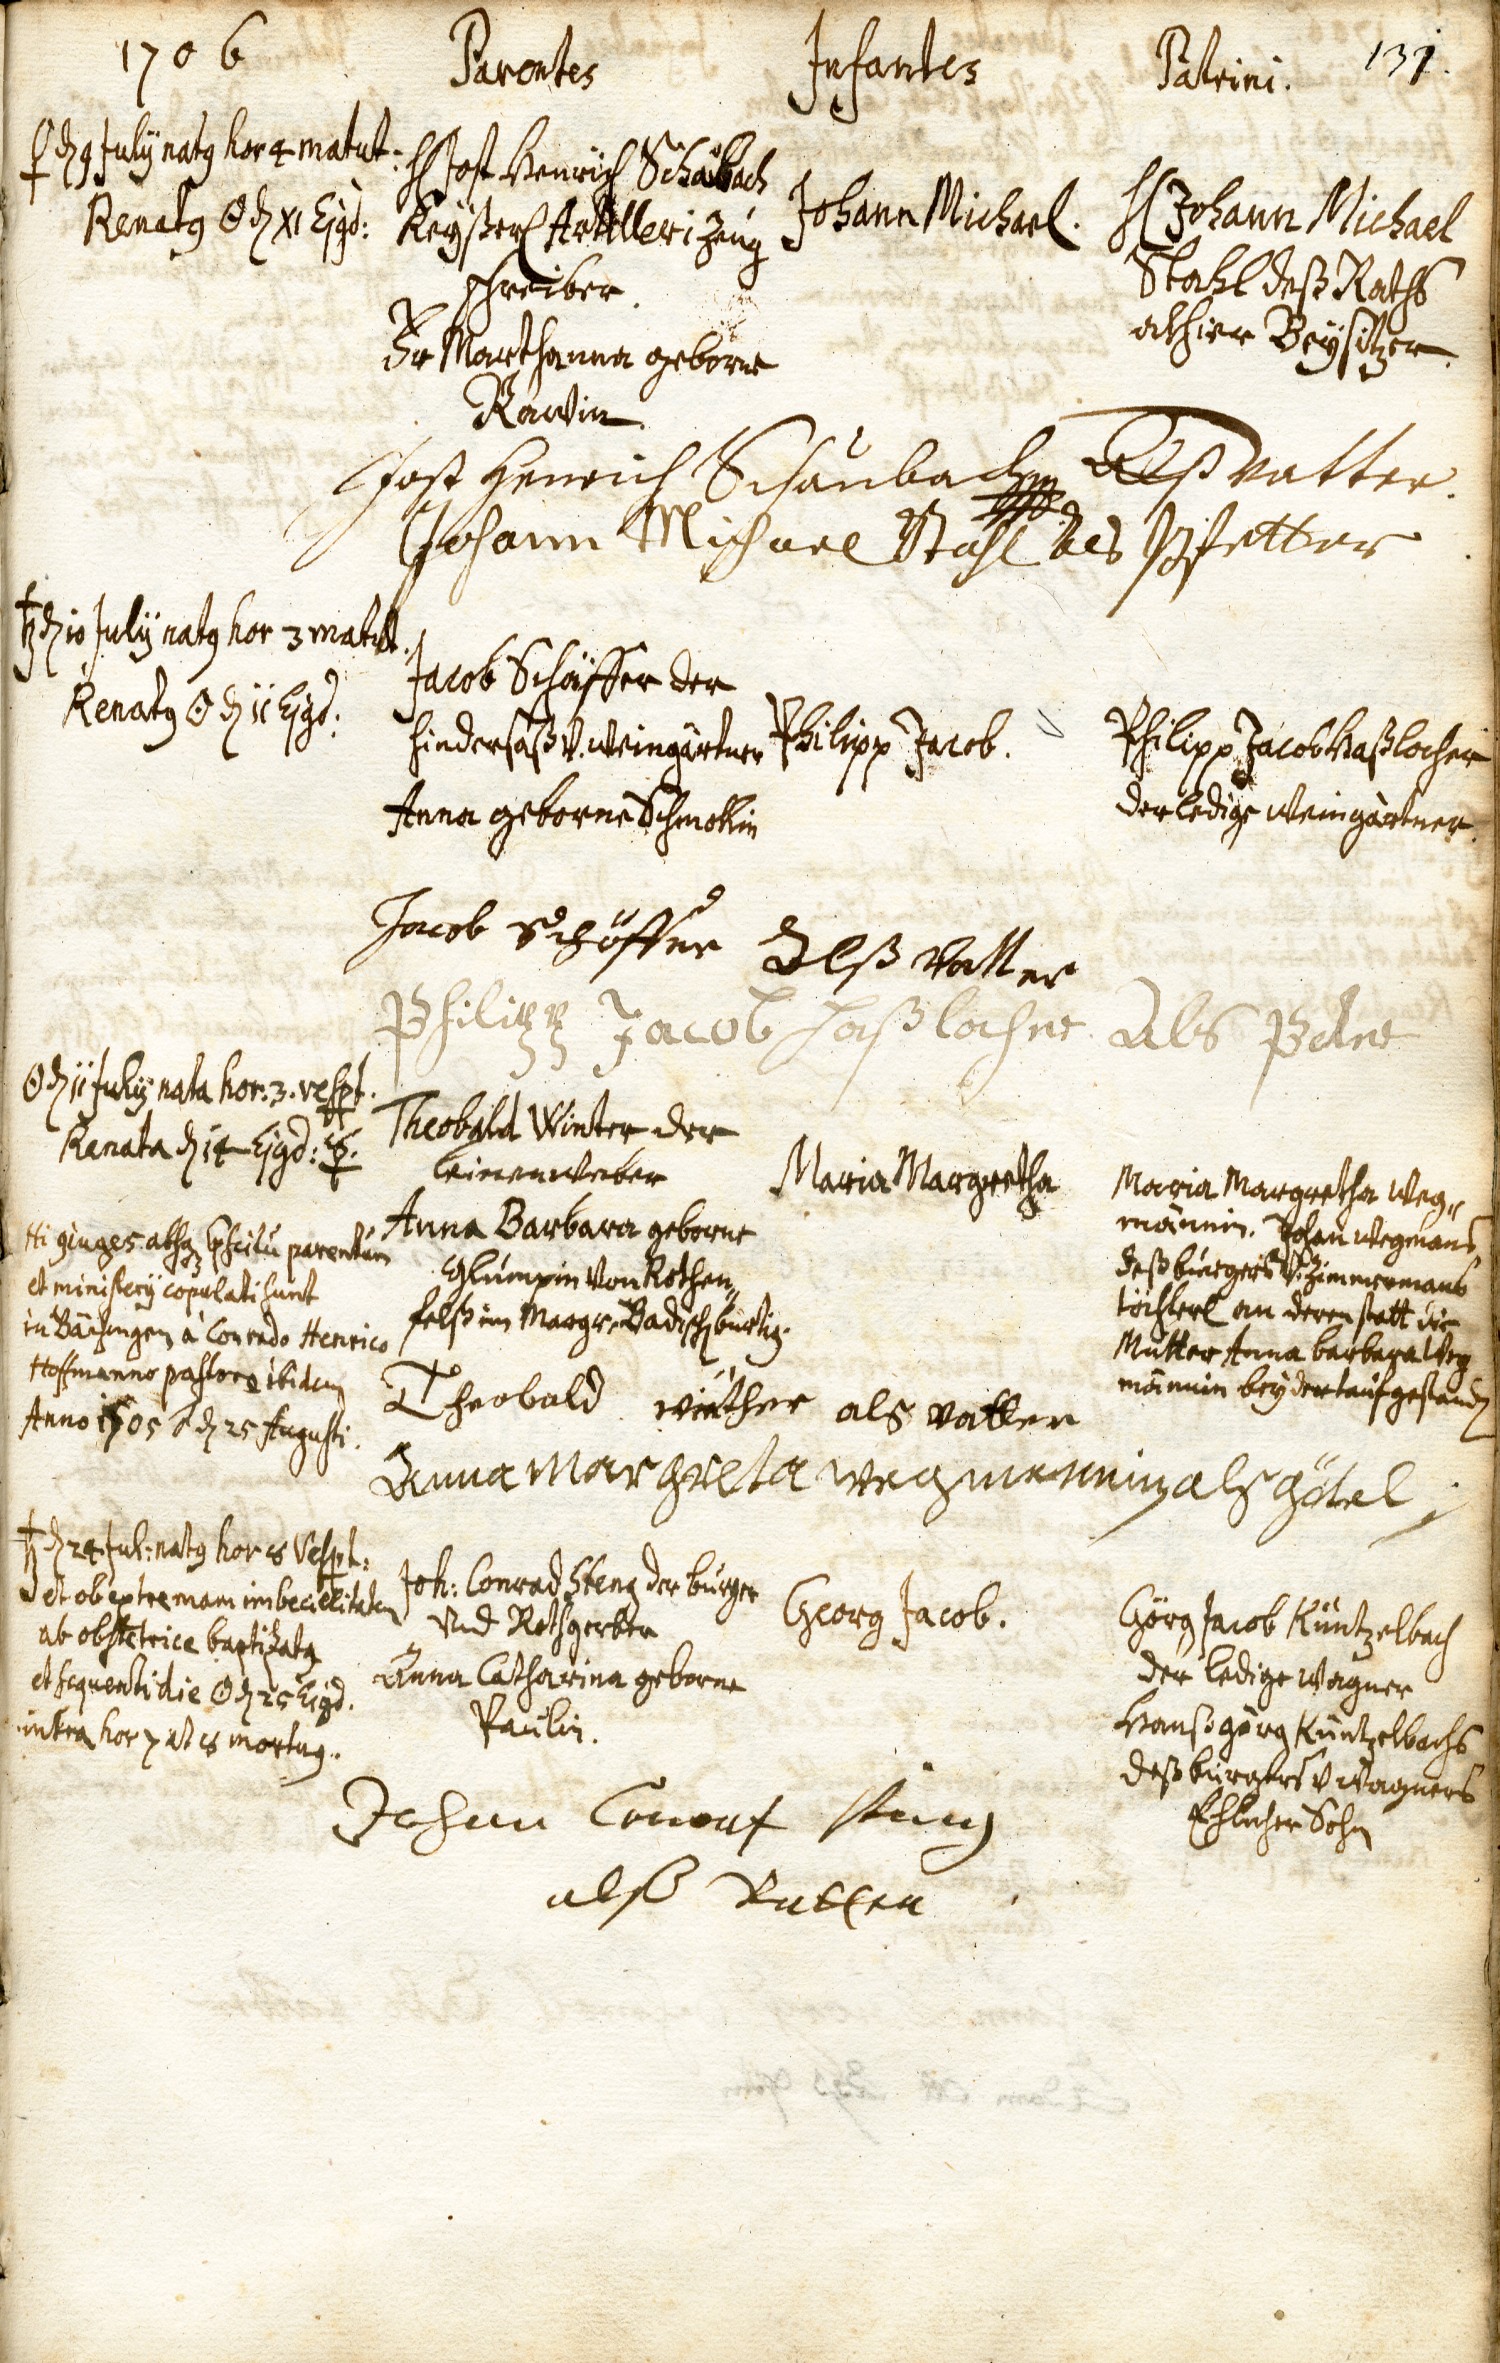 1706 Parentes Infantes Patrini. 131.
♀ d 9 July natg hor 4 matut:
Renatg ☉ d XI Ejgd:
H Jost Henrich Schaubach
Keyßerl Artilleri Zeug
schreiber.
Fr Marthanna geborne
Rawin
Johann Michael.
H Johann Michael
Stahl deß Raths
alhier Beysitzer.
Jost Henrich Schaubach Alß vatter.
Johann Michael Stahl als Pfetter
♄ d 10 July natg hor 3 matut.
Renatg ☉ d 11 Ejgd:
Jacob Schäffer der
hindersaß V. weingärtner
Anna geborne Schmollin
Philipp Jacob.
Philipp Jacob Haßlocher
der ledige weingärtner.
Jacob Schöffer Alß vatter
Philipp Jacob Haßlocher Als
☉ d 11 July nata hor: 3. vespt.
Renata d 14 Ejgd: ☿.
Theobald Winter der
leinenweber
Anna Barbara geborne
Glumpin von Rothen„
felß im Margr. Badisch bürtig.
Maria Margretha
Maria Margretha Weg„
männin. Johan Wegmans
deß burgers V. Zimmermans
töchterl an deren statt die
Mutter Anna barbara Weg
männin bey der tauf gestanden
et ministerij copulati sunt
in Bächingen à Conrado Henrico
Hoffmanno pastore ibidem
Anno 1705 d 25 Augusti.
Theobald winther als vatter
Anna Margreta Wegmennin als götel
♄ d 24 Jul: natg hor 8 Vespt:
et ob extremam imbecillitatem
ab obstetrice baptizatg
et sequenti die ☉ d 25 Ejgd.
intra hor 7 et 8 mortug.
Joh: Conrad Steng der burger
und Rothgerber
Anna Catharina geborne
Paulin.
Georg Jacob.
Görg Jacob Küntzelbach
der ledige Wagner
Hanß görg Küntzelbachs
deß burgers V wagners
Ehlicher Sohn
Johan Conrat
alß Vatter